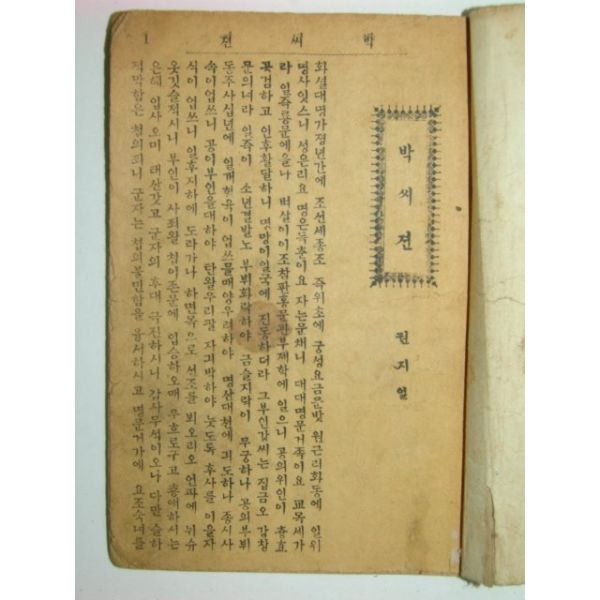 박씨젼 1
박씨젼
권지일
화셜대명가졍년간에 조션세종조 즉위초에 궁셩요금문밧 원근리화동에 일위
명사잇스니 셩은리요 명은득춘이요 자는문채니 대대명문거족이요 교목셰가
라 일즉룡문에올나 벼살이이조참판홍문관부제학에 일으니 공의위인이 츙효
검하고 인후활달하니 명망이일국에 진동하더라 그부인강씨는 집금오 강창
문의녀라 일즉이 소년결발노 부뷔화락하야 금슬지락이 무궁하나 공의부뷔
동주사십년에 일개혈육이 업쓰믈매양우려하야 명산대천에 긔도하나 종시사
속이업쓰니 공이부인을대하야 탄왈우리필 자긔박하야 늣도록 후사를 이을자
식이 업쓰니 일후지하에 도라가나 하면목으로 션조를 뵈오리오 언파에 뉘슈
옷깃슬젹시니 부인이 사죄왈 쳡이존문에 입승하오매 우흐로구고 츙애하시는
은혜 입사오미 태산갓고 군자의 후대 극진하시니 감사무석이오나 다만 슬하
젹막함은 쳡의죄니 군자는 쳡의불민함을 용셔하시고 명문거가에 요조숙녀를